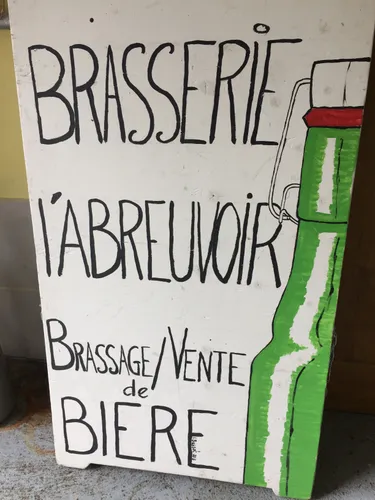 BRASSERIE
l'ABREUVOIR
BRASSAGE/VENTE
de
BIERE